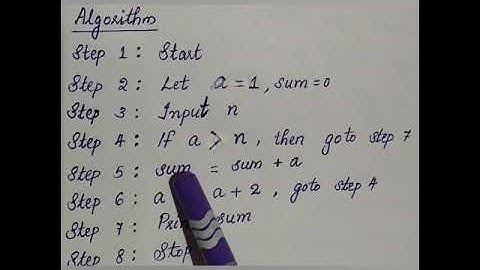 Algorithm
Step 1 : Start
Step 2 : Let a = 1 , sum = 0
Step 3 : Input n
Step 4 : If a > n , then goto step 7
Step 5 : sum = sum + a
Step 6 : a a + 2 , goto step 4
Step 7 : sum
Step 8 : Stop